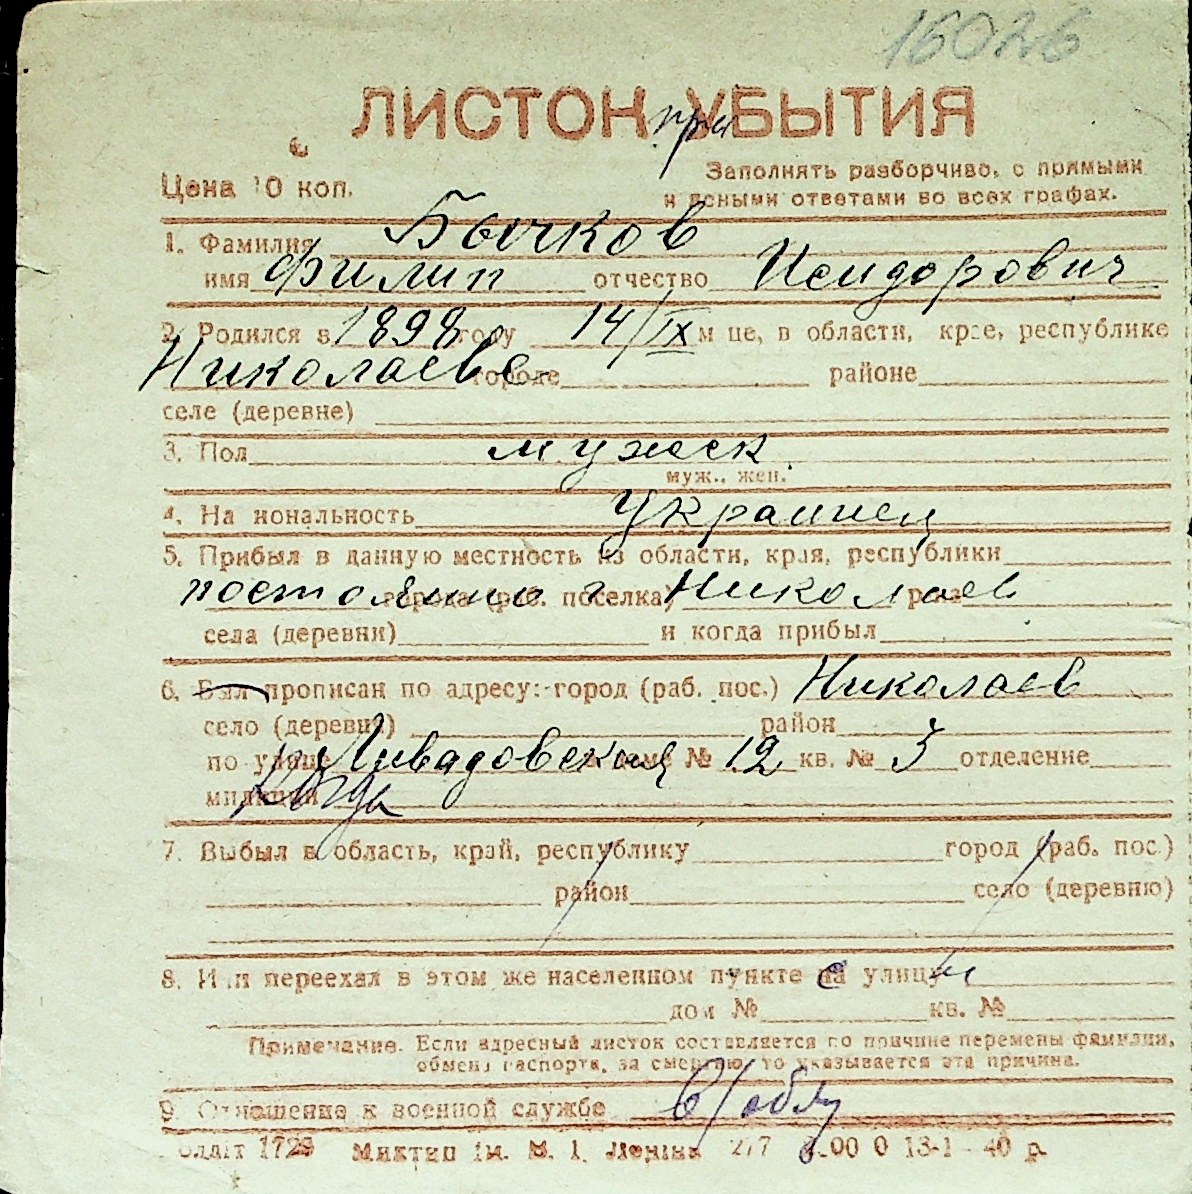 16026
ЛИСТОК при УБЫТИЯ
Цена 10 коп.
Заполнять разборчиво, с прямыми
и ясными ответами во всех графах.
1. Фамилия Бычков
имя Филип отчество Исидорович
2. Родился в 1898 году 14/IX м це, в области, крае, республике
Николаеве городе районе
селе (деревне)
3. Пол мужск
муж., жен.
4. На иональность Украинец
5. Прибыл в данную местность из области, края, республики
постоянно города (раб. поселка) Николаев
села (деревни) и когда прибыл
6. Был прописан по адресу: город (раб. пос.) Николаев
село (деревня) район
по улице Ливадовская доме № 12 кв. № 3 отделение
милиции когда
7. Выбыл в область, край, республику город (раб. пос.)
район село (деревню)
8. Или переехал в этом же населенном пункте с на улицы
дом № кв. №
Примечание. Если адресный листок составляется по причине перемены фамилии,
обмена паспорта, за смертью, то указывается эта причина.
9. Отношение к военной службе в/обяз
1729 Миктип ім. В. І. Леніна 13-1-40 р.